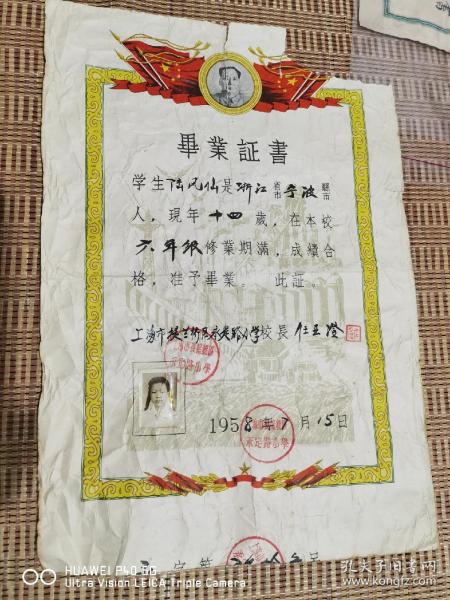 畢業証書
学生陆凤仙是浙江省市宁波縣市
人，現年十四歲，在本校
六年級修業期滿，成績合
格，准予畢業。此証。
上海市提籃橋區永定路小学校長任玉澄
永定路小學
1958年7月15日
永定路小學
字第
HUAWEI P40 5G
Ultra Vision LEICA Triple Camera
孔夫子旧书网
www.kongfz.com